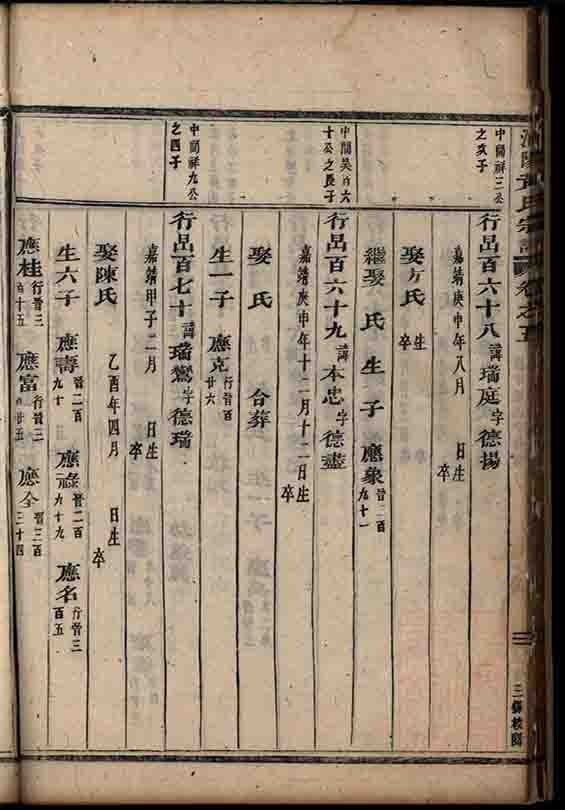 氏宗譜 卷之五
中關祥三公
之次子
行呂百六十八 諱瑞庭字德揚
嘉靖庚申年八月 日生
卒
娶方氏 生
卒
繼娶 氏 生 子 應象 晉二百
九十一
十公之長子
行呂百六十九 諱本忠字德盡
嘉靖庚申年十二月十二日生
卒
娶 氏 合葬
生一子 應克 行晉百
廿六
中關祥九公
之四子
行呂百七十 諱瑞鸞字德瑞
嘉靖甲子二月 日生
卒
娶陳氏 乙酉年四月 日生
卒
生六子 應壽 晉二百
九十
應祿 晉二百
九十九
應名 行晉三
百五
應桂 行晉三
百十五
應富 行晉三
百廿五
應全 晉三百
三十四
三